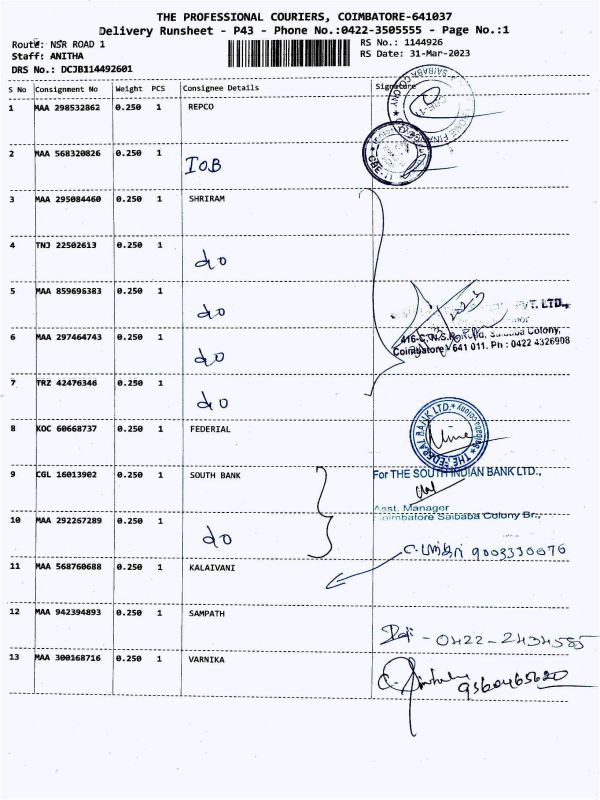 THE PROFESSIONAL COURIERS, COIMBATORE-641037
Delivery Runsheet - P43 - Phone No.:0422-3505555 - Page No.:1
Route: NSR ROAD 1
RS No.: 1144926
Staff: ANITHA
RS Date: 31-Mar-2023
DRS No.: DCJB114492601
S No Consignment No Weight PCS Consignee Details Signature
1 MAA 298532862 0.250 1 REPCO
2 MAA 568320826 0.250 1 IOB
3 MAA 295084460 0.250 1 SHRIRAM
4 TNJ 22502613 0.250 1 do
5 MAA 859696383 0.250 1 do
PVT. LTD.,
6 MAA 297464743 0.250 1 do
Saibaba Colony,
Coimbatore - 641 011. Ph : 0422 4326908
7 TRZ 42476346 0.250 1 do
8 KOC 60668737 0.250 1 FEDERIAL
THE FEDERAL BANK LTD.
9 CGL 16013902 0.250 1 SOUTH BANK
For THE SOUTH INDIAN BANK LTD.,
Asst. Manager
Coimbatore Saibaba Colony Br.,
10 MAA 292267289 0.250 1 do
9003330076
11 MAA 568760688 0.250 1 KALAIVANI
12 MAA 942394893 0.250 1 SAMPATH
0422-2434585
13 MAA 300168716 0.250 1 VARNIKA